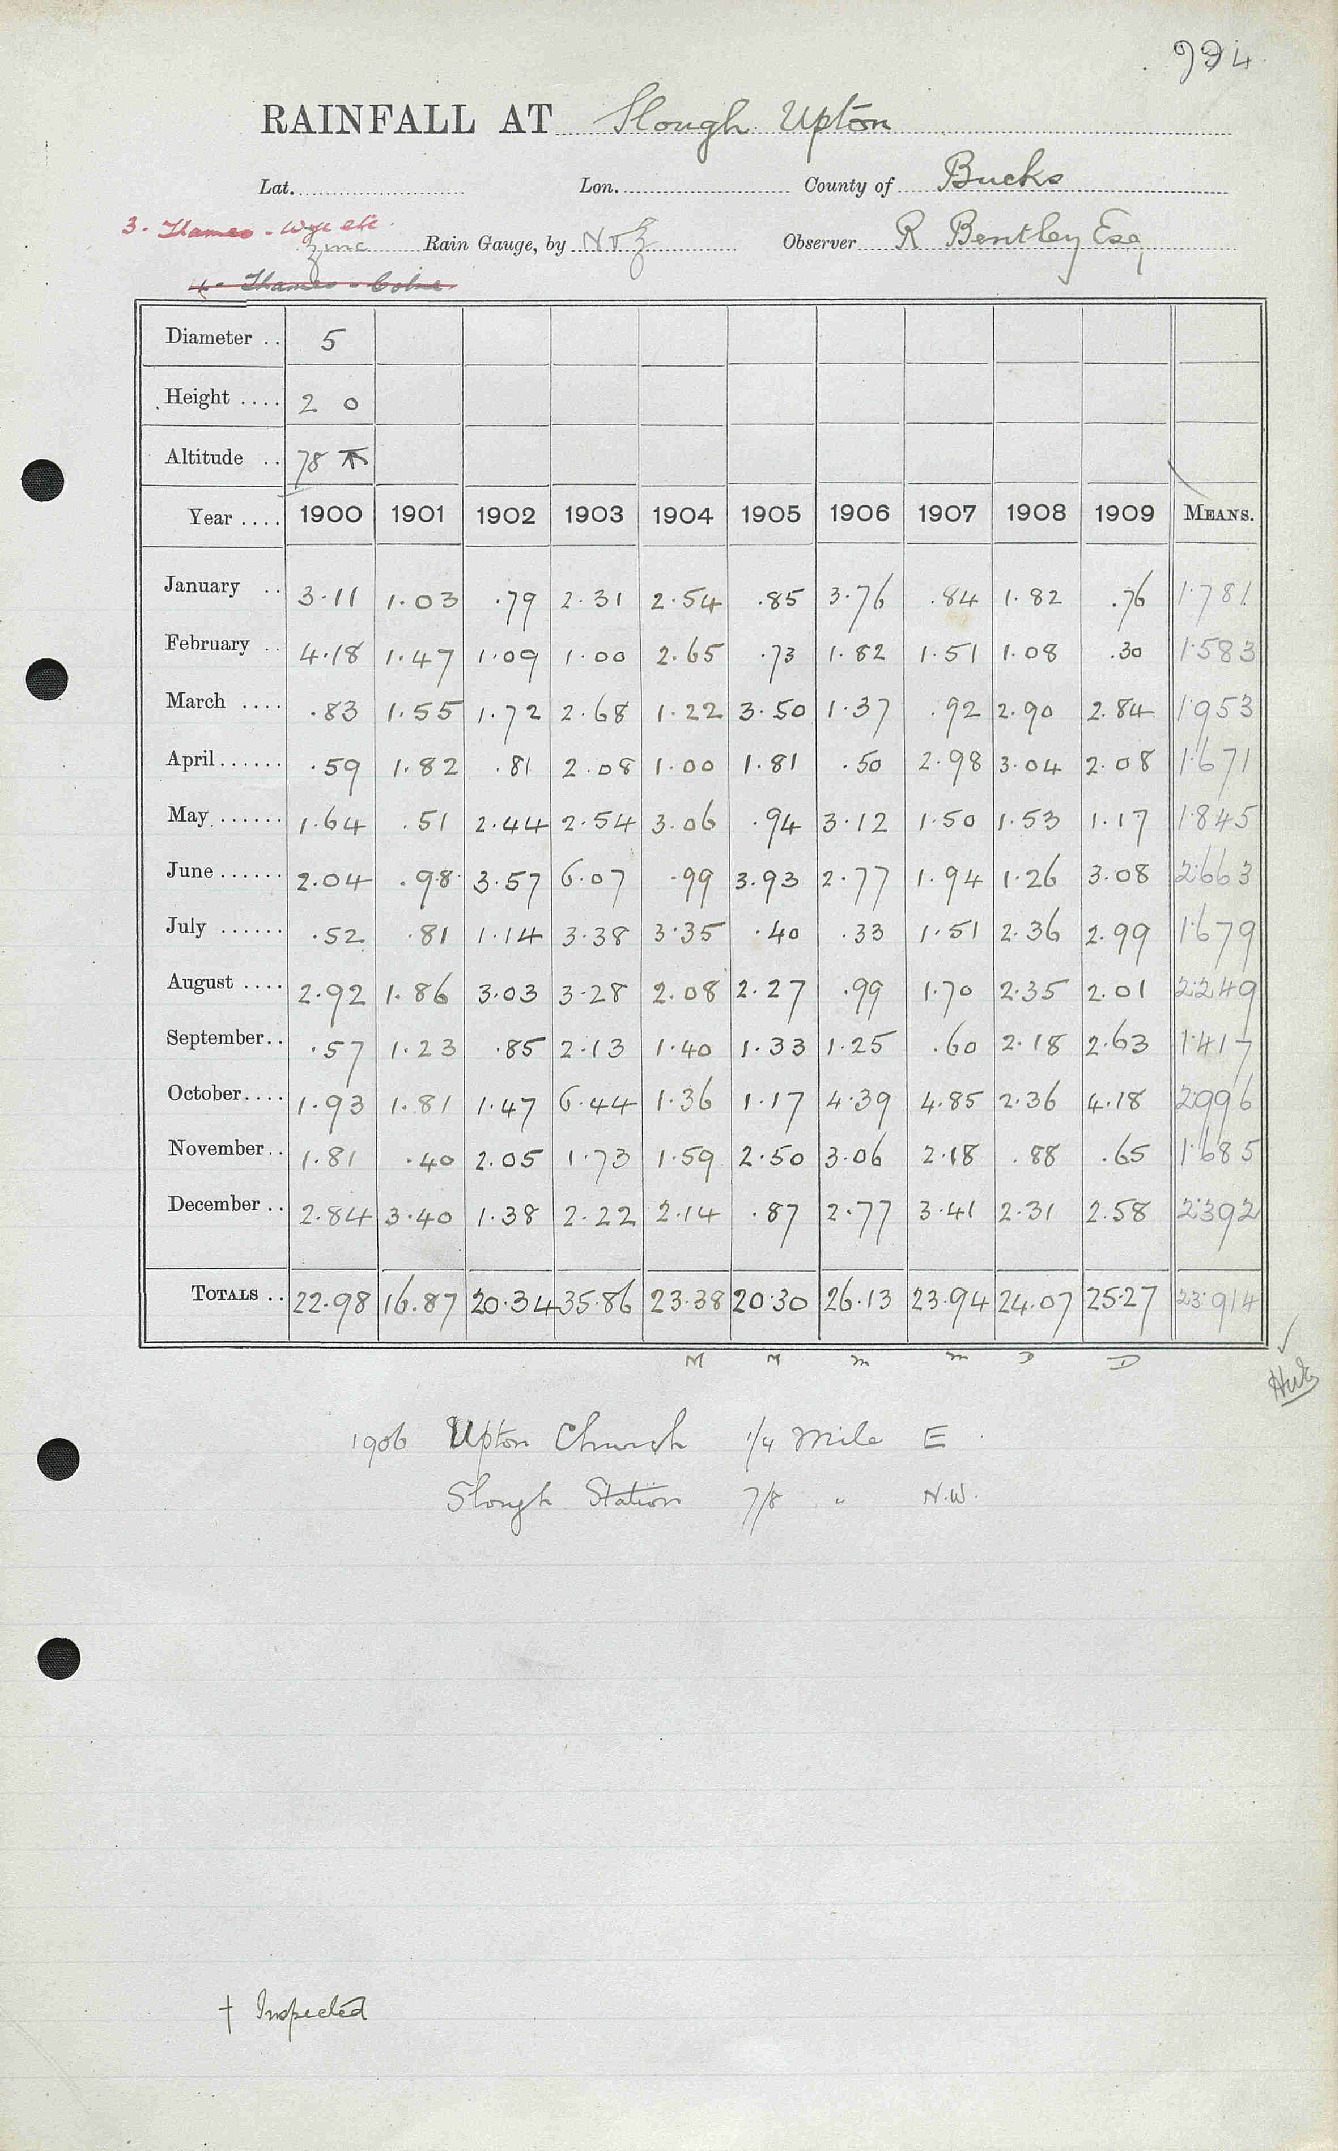 994
RAINFALL AT Slough Upton
Lat. Lon. County of Bucks
3. Thames - Wye etc
zinc Rain Gauge, by N & Z Observer R Bentley Esq
4 - Thames - Colne
Diameter .. 5
Height .... 2 0
Altitude .. 78
Year .... 1900 1901 1902 1903 1904 1905 1906 1907 1908 1909 MEANS.
January .. 3.11 1.03 .79 2.31 2.54 .85 3.76 .84 1.82 .76 1.781
February .. 4.18 1.47 1.09 1.00 2.65 .73 1.82 1.51 1.08 .30 1.583
March .... .83 1.55 1.72 2.68 1.22 3.50 1.37 .92 2.90 2.84 1.953
April ...... .59 1.82 .81 2.08 1.00 1.81 .50 2.98 3.04 2.08 1.671
May ...... 1.64 .51 2.44 2.54 3.06 .94 3.12 1.50 1.53 1.17 1.845
June ...... 2.04 .98 3.57 6.07 .99 3.93 2.77 1.94 1.26 3.08 2.663
July ...... .52 .81 1.14 3.38 3.35 .40 .33 1.51 2.36 2.99 1.679
August .... 2.92 1.86 3.03 3.28 2.08 2.27 .99 1.70 2.35 2.01 2.249
September .. .57 1.23 .85 2.13 1.40 1.33 1.25 .60 2.18 2.63 1.417
October .... 1.93 1.81 1.47 6.44 1.36 1.17 4.39 4.85 2.36 4.18 2.996
November .. 1.81 .40 2.05 1.73 1.59 2.50 3.06 2.18 .88 .65 1.685
December .. 2.84 3.40 1.38 2.22 2.14 .87 2.77 3.41 2.31 2.58 2.392
TOTALS .. 22.98 16.87 20.34 35.86 23.38 20.30 26.13 23.94 24.07 25.27 23.914
M M m m D D
1906 Upton Church 1/4 mile E
Slough Station 7/8 " N.W.
† Inspected